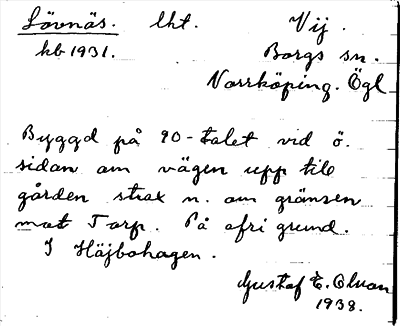 Lövnäs. lht. Vij.
kb 1931. Borgs sn.
Norrköping. Ögl
Byggd på 90-talet vid ö.
sidan om vägen upp till
gården strax n. om gränsen
mot Torp. På ofri grund.
I Höjbohagen.
Gustaf E. Olson
1938.